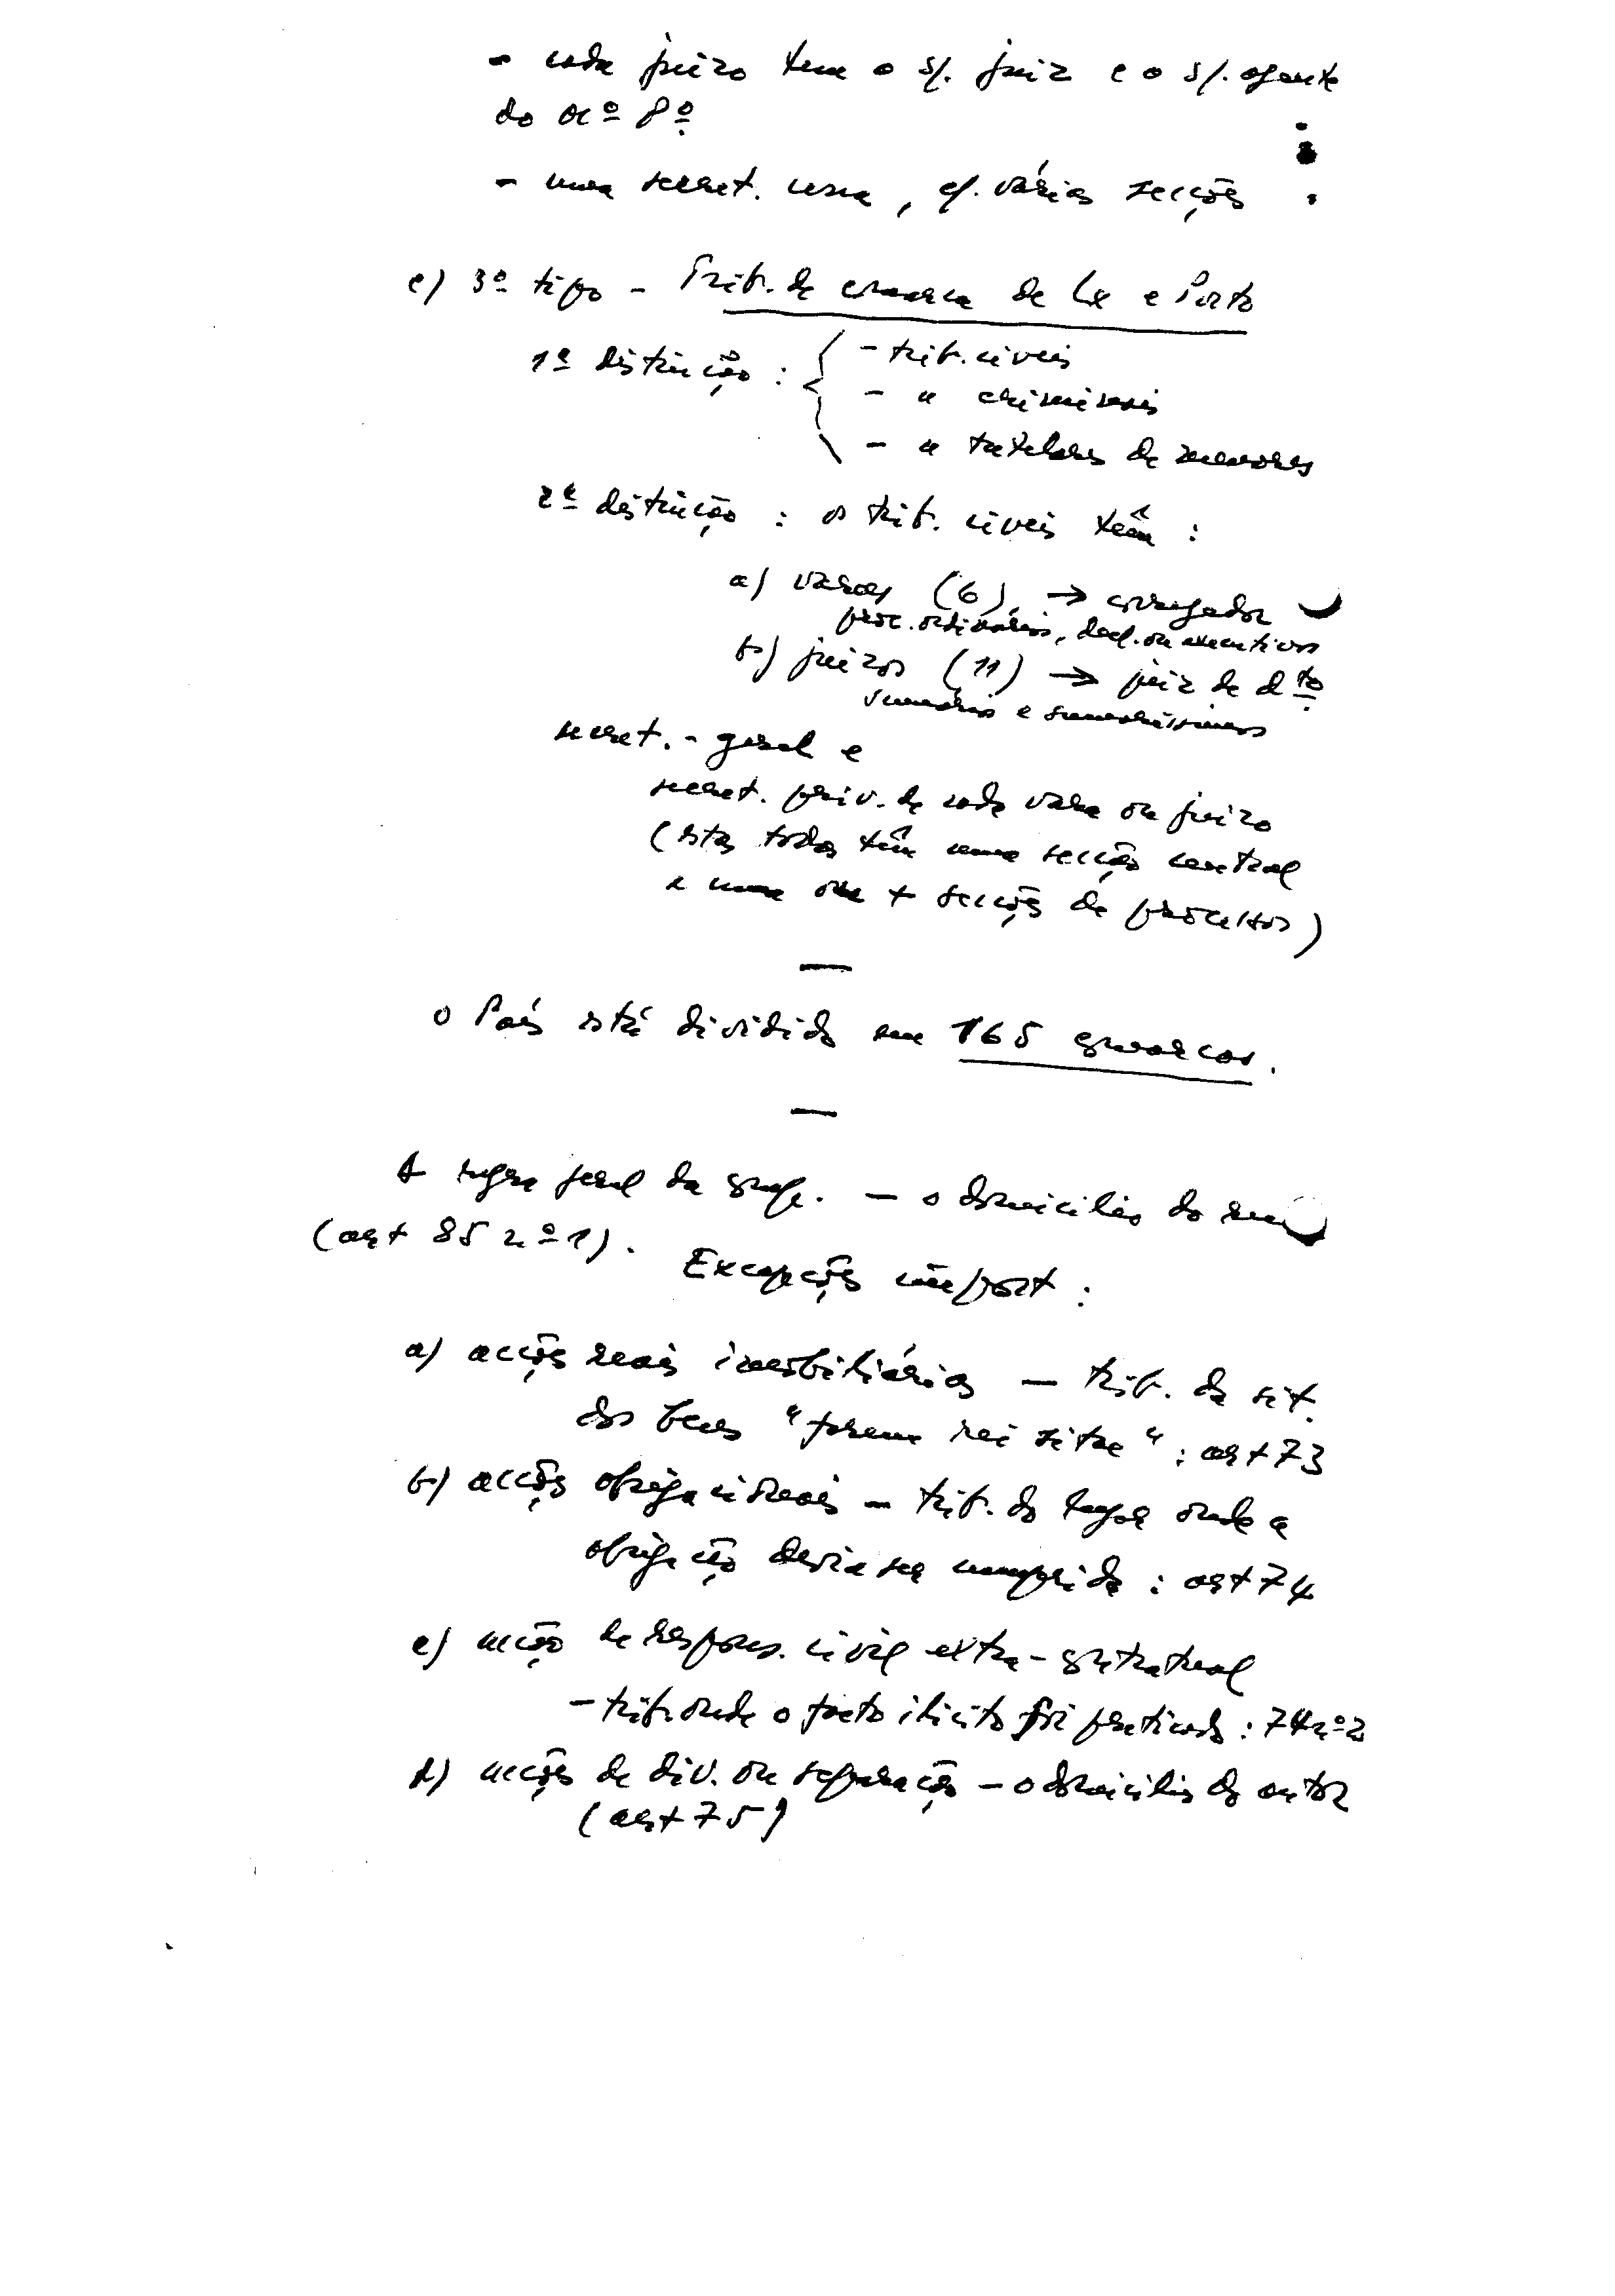 - cada juízo tem o s/. juiz e o s/. agente
do Mº Pº.
- uma secret. comum, c/. várias secções
c) 3º tipo - Trib. de comarca de Lx e Porto
1ª distinção : { - trib. cíveis
- " criminais
- " tutelares de menores
2ª distinção : os trib. cíveis têm :
a) varas (6) → corregedor
proc. ordinários, decl. ou executivos
b) juízos (11) → juiz de dto.
sumários e sumaríssimos
secret. - geral e
secret. priv. de cada vara ou juízo
(estas todas têm uma secção central
e uma ou + secções de processos)
—
O País está dividido em 165 comarcas.
—
A regra geral da comp. — o domicílio do réu
(art 85 nº 1). Excepções import :
a) acções reais imobiliárias — trib. da sit.
dos bens "forum rei sitae" : art 73
b) acções obrigacionais — trib. do lugar onde a
obrigação devia ser cumprida : art 74
c) acção de respons. civil extra-contratual
- trib. onde o facto ilícito foi praticado : 74 nº 2
d) acções de div. ou separação — o domicílio do autor
(art 75)